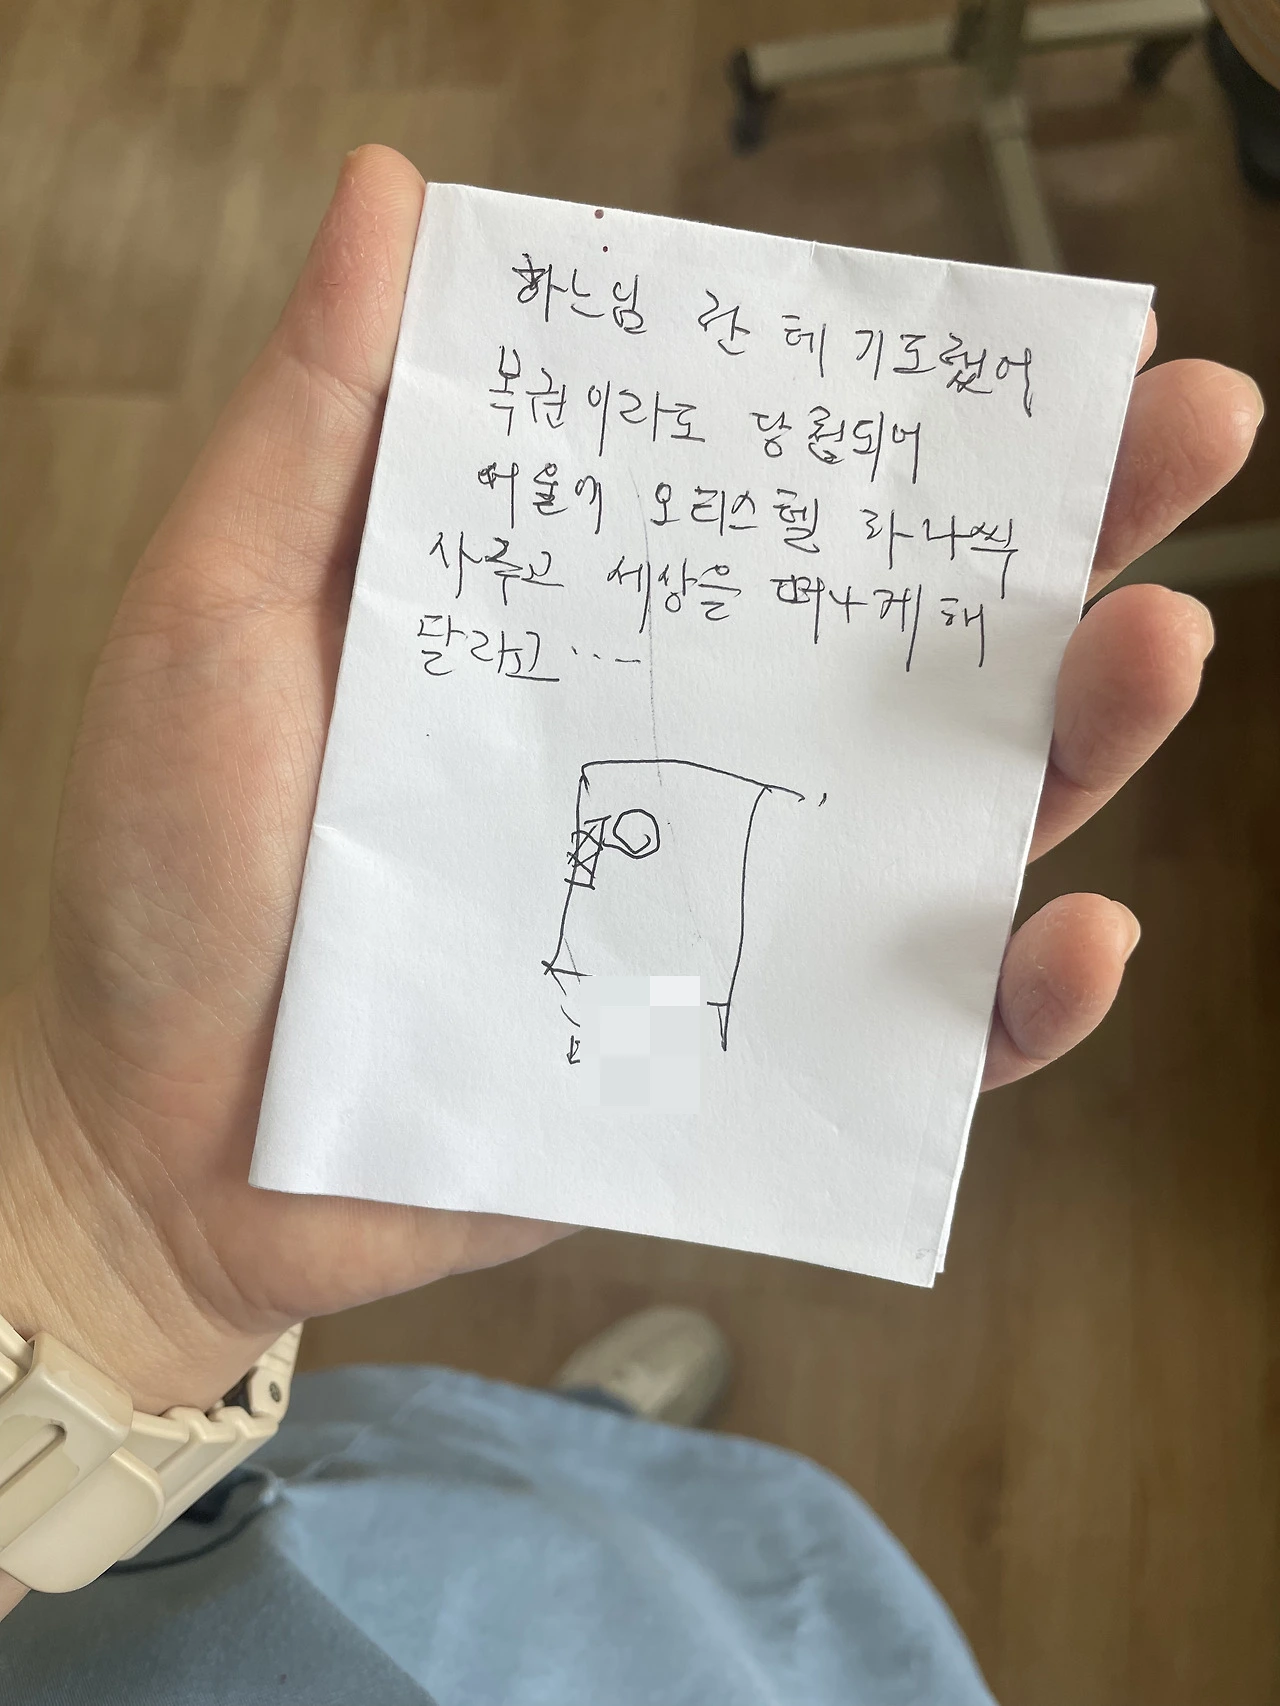 하느님 한테 기도했어
복권이라도 당첨되어
서울에 오피스텔 하나씩
사주고 세상을 떠나게 해
달라고...